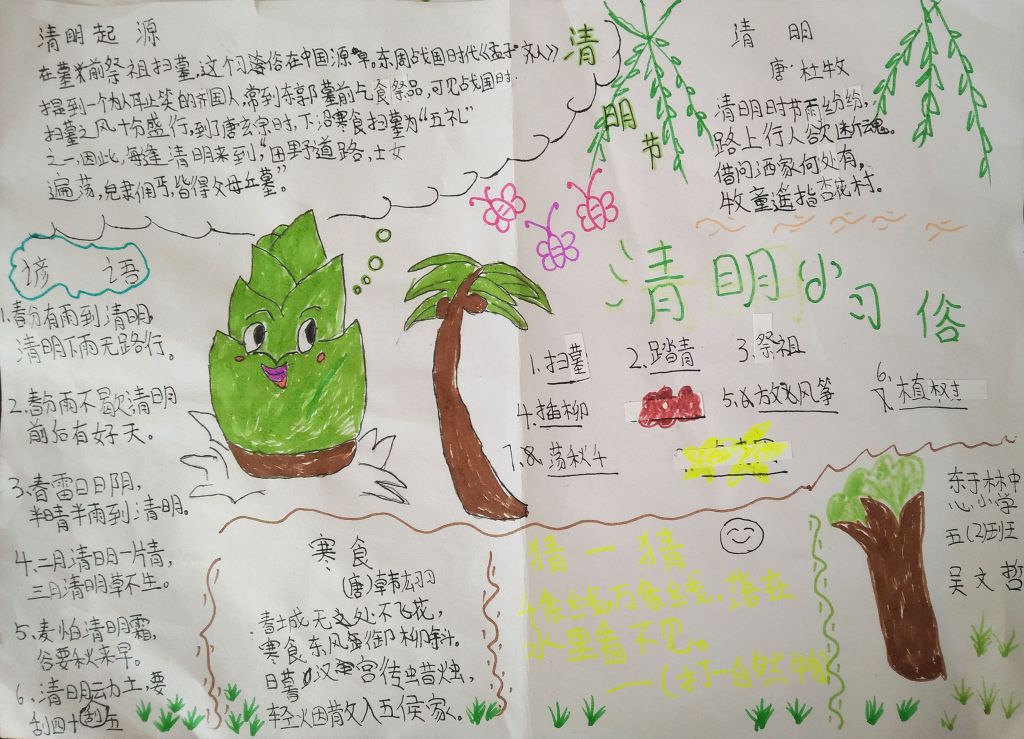 清明起源
在墓前祭祖扫墓,这个习俗在中国源早。东周战国时代《孟子 齐人》
提到一个为人耻笑的齐国人,常到东郭墓前乞食祭品,可见战国时
扫墓之风十分盛行,到了唐玄宗时,下 寒食扫墓为“五礼”
之一,因此,每逢清明来到,“田野道路,士女
遍荡,皂隶佣丐,皆得父母丘墓”。
清
明
节
清 明
唐·杜牧
清明时节雨纷纷,
路上行人欲断魂。
借问酒家何处有,
牧童遥指杏花村。
谚 语
1.春分有雨到清明,
清明下雨无路行。
2.春分雨不歇清明
前后有好天。
3.春雷日日阴,
半晴半雨到清明。
4.二月清明一片青,
三月清明草不生。
5.麦怕清明霜,
谷要秋来旱。
6.清明动土,要
刮四十
清明小习俗
1.扫墓 2.踏青 3.祭祖
4.插柳 5.放风筝 6.植树
7.荡秋千
寒食
(唐)韩翃
春城无处不飞花,
寒食东风御柳斜。
日暮汉宫传蜡烛,
轻烟散入五侯家。
猜一猜
千条线万条线,落在
水里看不见。
——(打一自然 )
东于林中
心小学
五(2)班
吴文哲